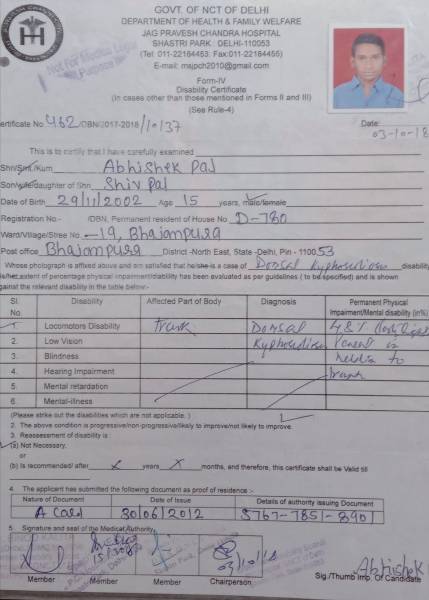 GOVT. OF NCT OF DELHI
DEPARTMENT OF HEALTH & FAMILY WELFARE
JAG PRAVESH CHANDRA HOSPITAL
SHASTRI PARK : DELHI-110053
(Tel: 011-22184453 Fax:011-22184455)
E-mail: msjpch2010@gmail.com
Form-IV
Disability Certificate
(In cases other than those mentioned in Forms II and III)
(See Rule-4)
Not For Medico Legal Purpose
ertificate No. 462/DBN/2017-2018/10137
Date:
03-10-18
This is to certify that I have carefully examined
Shri/Smt./Kum Abhishek Pal
Son/wife/daughter of Shri Shiv Pal
Date of Birth 29/11/2002 Age 15 years, male/female
Registration No.- /DBN, Permanent resident of House No. D-780
Ward/Village/Stree No. -19, Bhajanpura
Post office Bhajanpura District -North East, State -Delhi, Pin - 110053
Whose photograph is affixed above and am satisfied that he/she is a case of Dorsal disability
is/her extent of percentage physical impairment/diability has been evaluated as per guidelines ( to be specified) and is shown
gainst the relevant disability in the table below:-
Sl. No. Disability Affected Part of Body Diagnosis Permanent Physical Impairment/Mental disability (in%)
1. Locomotors Disability Trunk Dorsal 48%
2. Low Vision
3. Blindness
4. Hearing Impairment
5. Mental retardation
6. Mental-illness
(Please strike out the disabilities which are not applicable. )
2. The above condition is progressive/non-progressive/likely to improve/not likely to improve.
3. Reassessment of disability is :
(a) Not Necessary.
or
(b) Is recommended/ after x years x months, and therefore, this certificate shall be Valid till
4. The applicant has submitted the following document as proof of residence :-
Nature of Document Date of Issue Details of authority issuing Document
A Card 30/06/2012 5767-7851-8901
5. Signature and seal of the Medical Authority
03/10/18
Abhishek
Member Member Member Chairperson Sig./Thumb Imp. Of Candidate